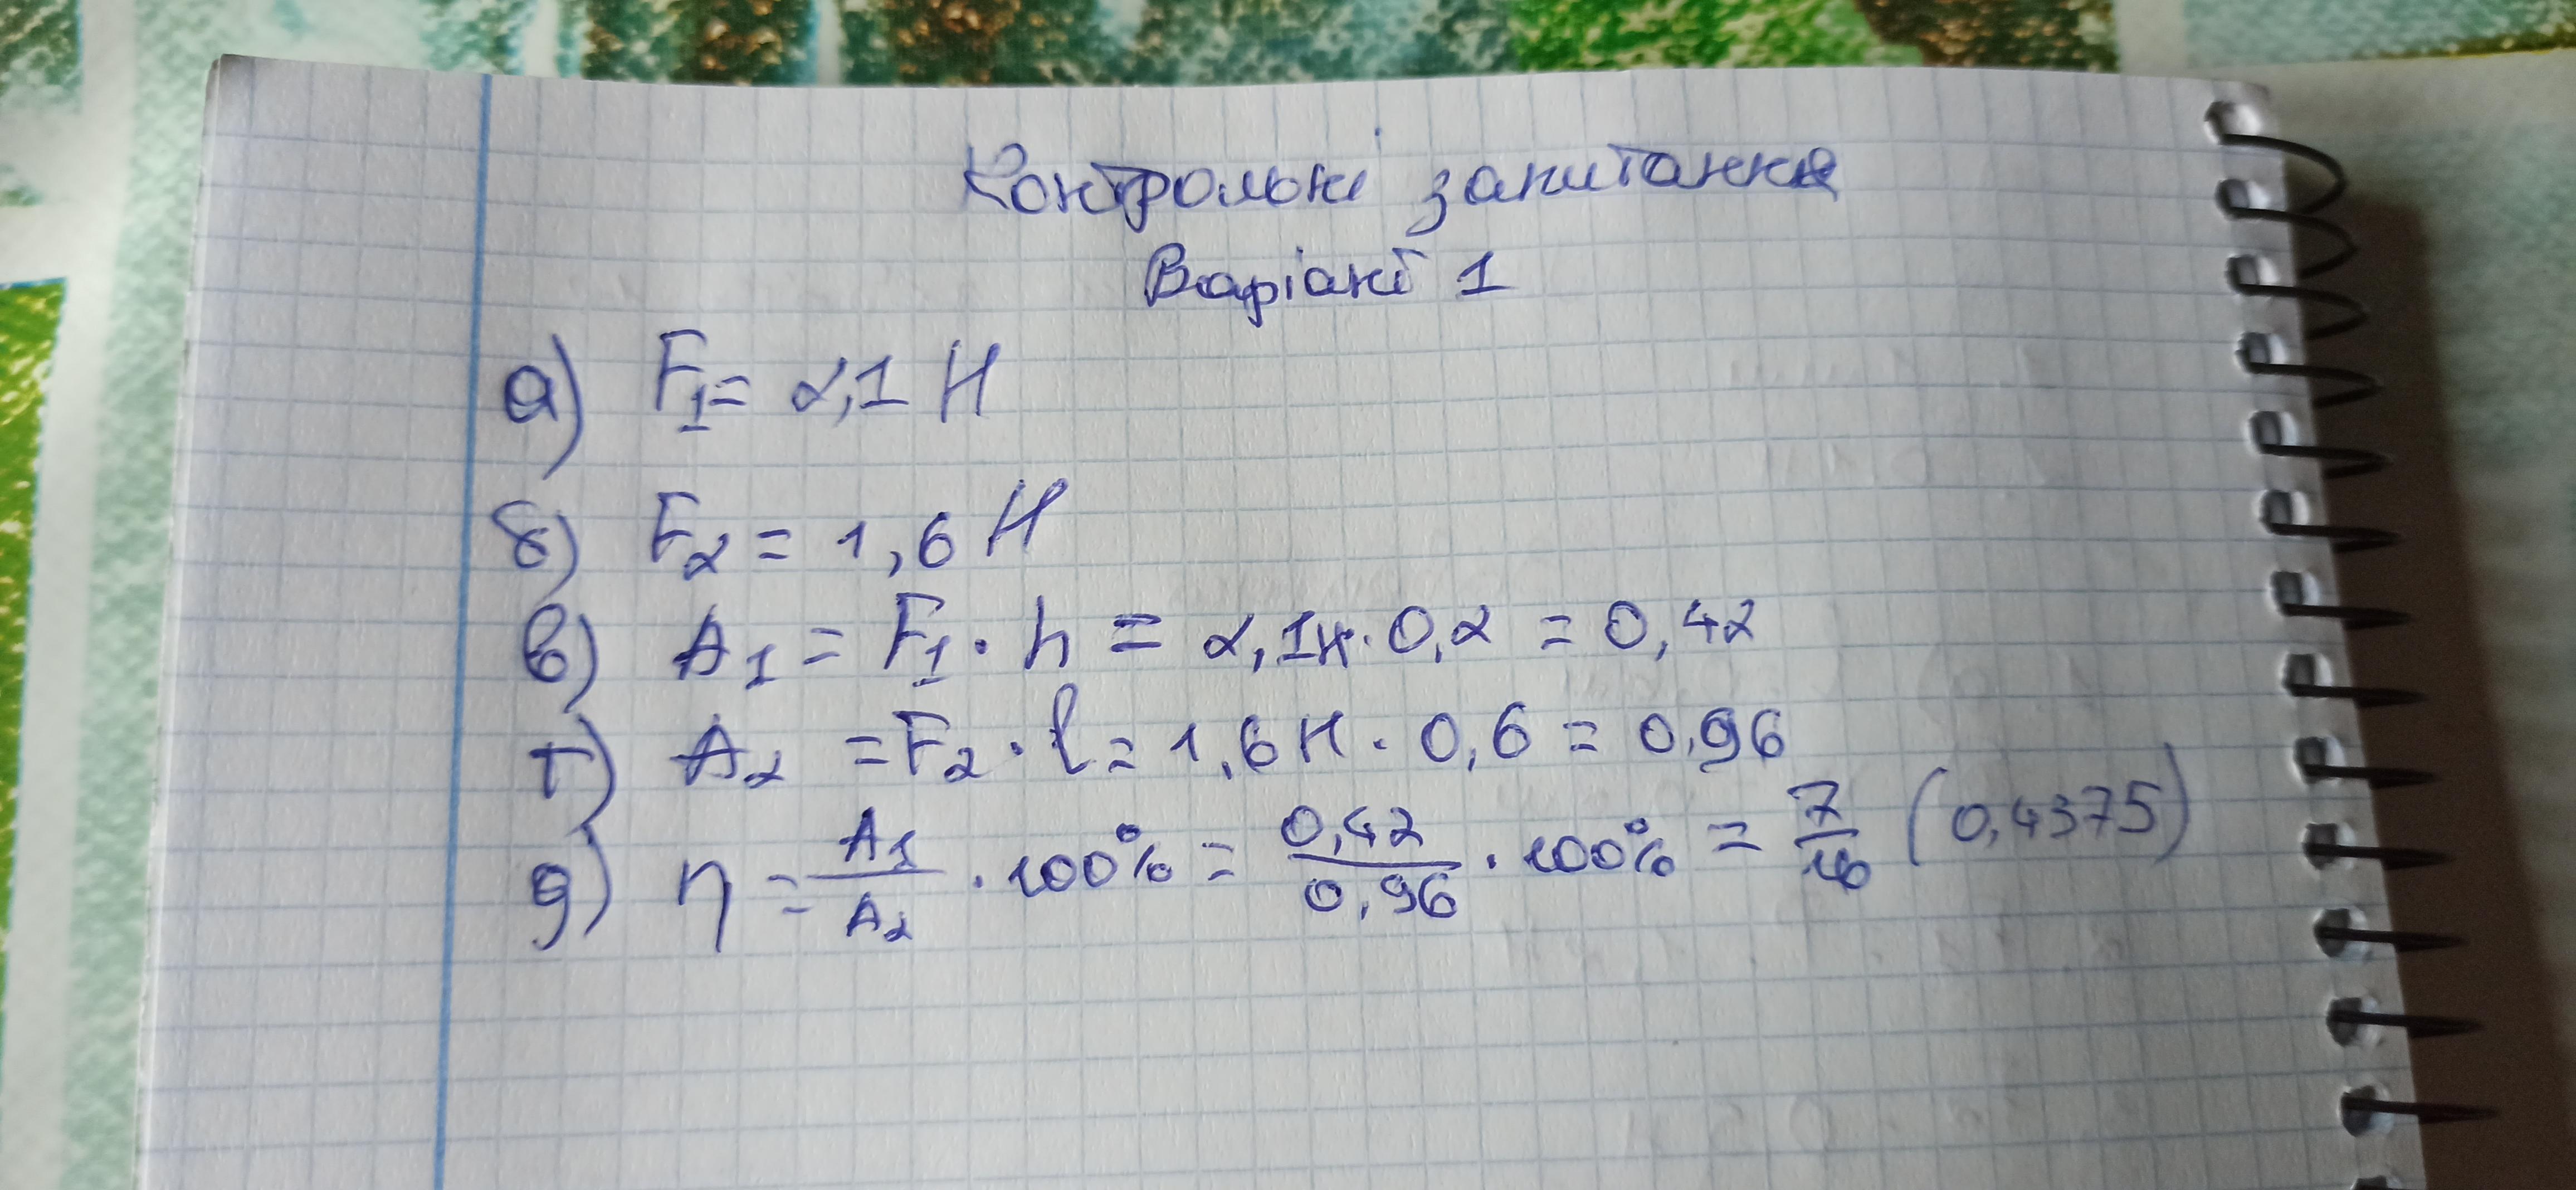 Контрольні запитання
Варіант 1
а) F₁ = 2,1 Н
б) F₂ = 1,6 Н
в) A₁ = F₁ · h = 2,1н · 0,2 = 0,42
г) A₂ = F₂ · l = 1,6 Н · 0,6 = 0,96
д) η = A₁/A₂ · 100% = 0,42/0,96 · 100% = 7/16 (0,4375)